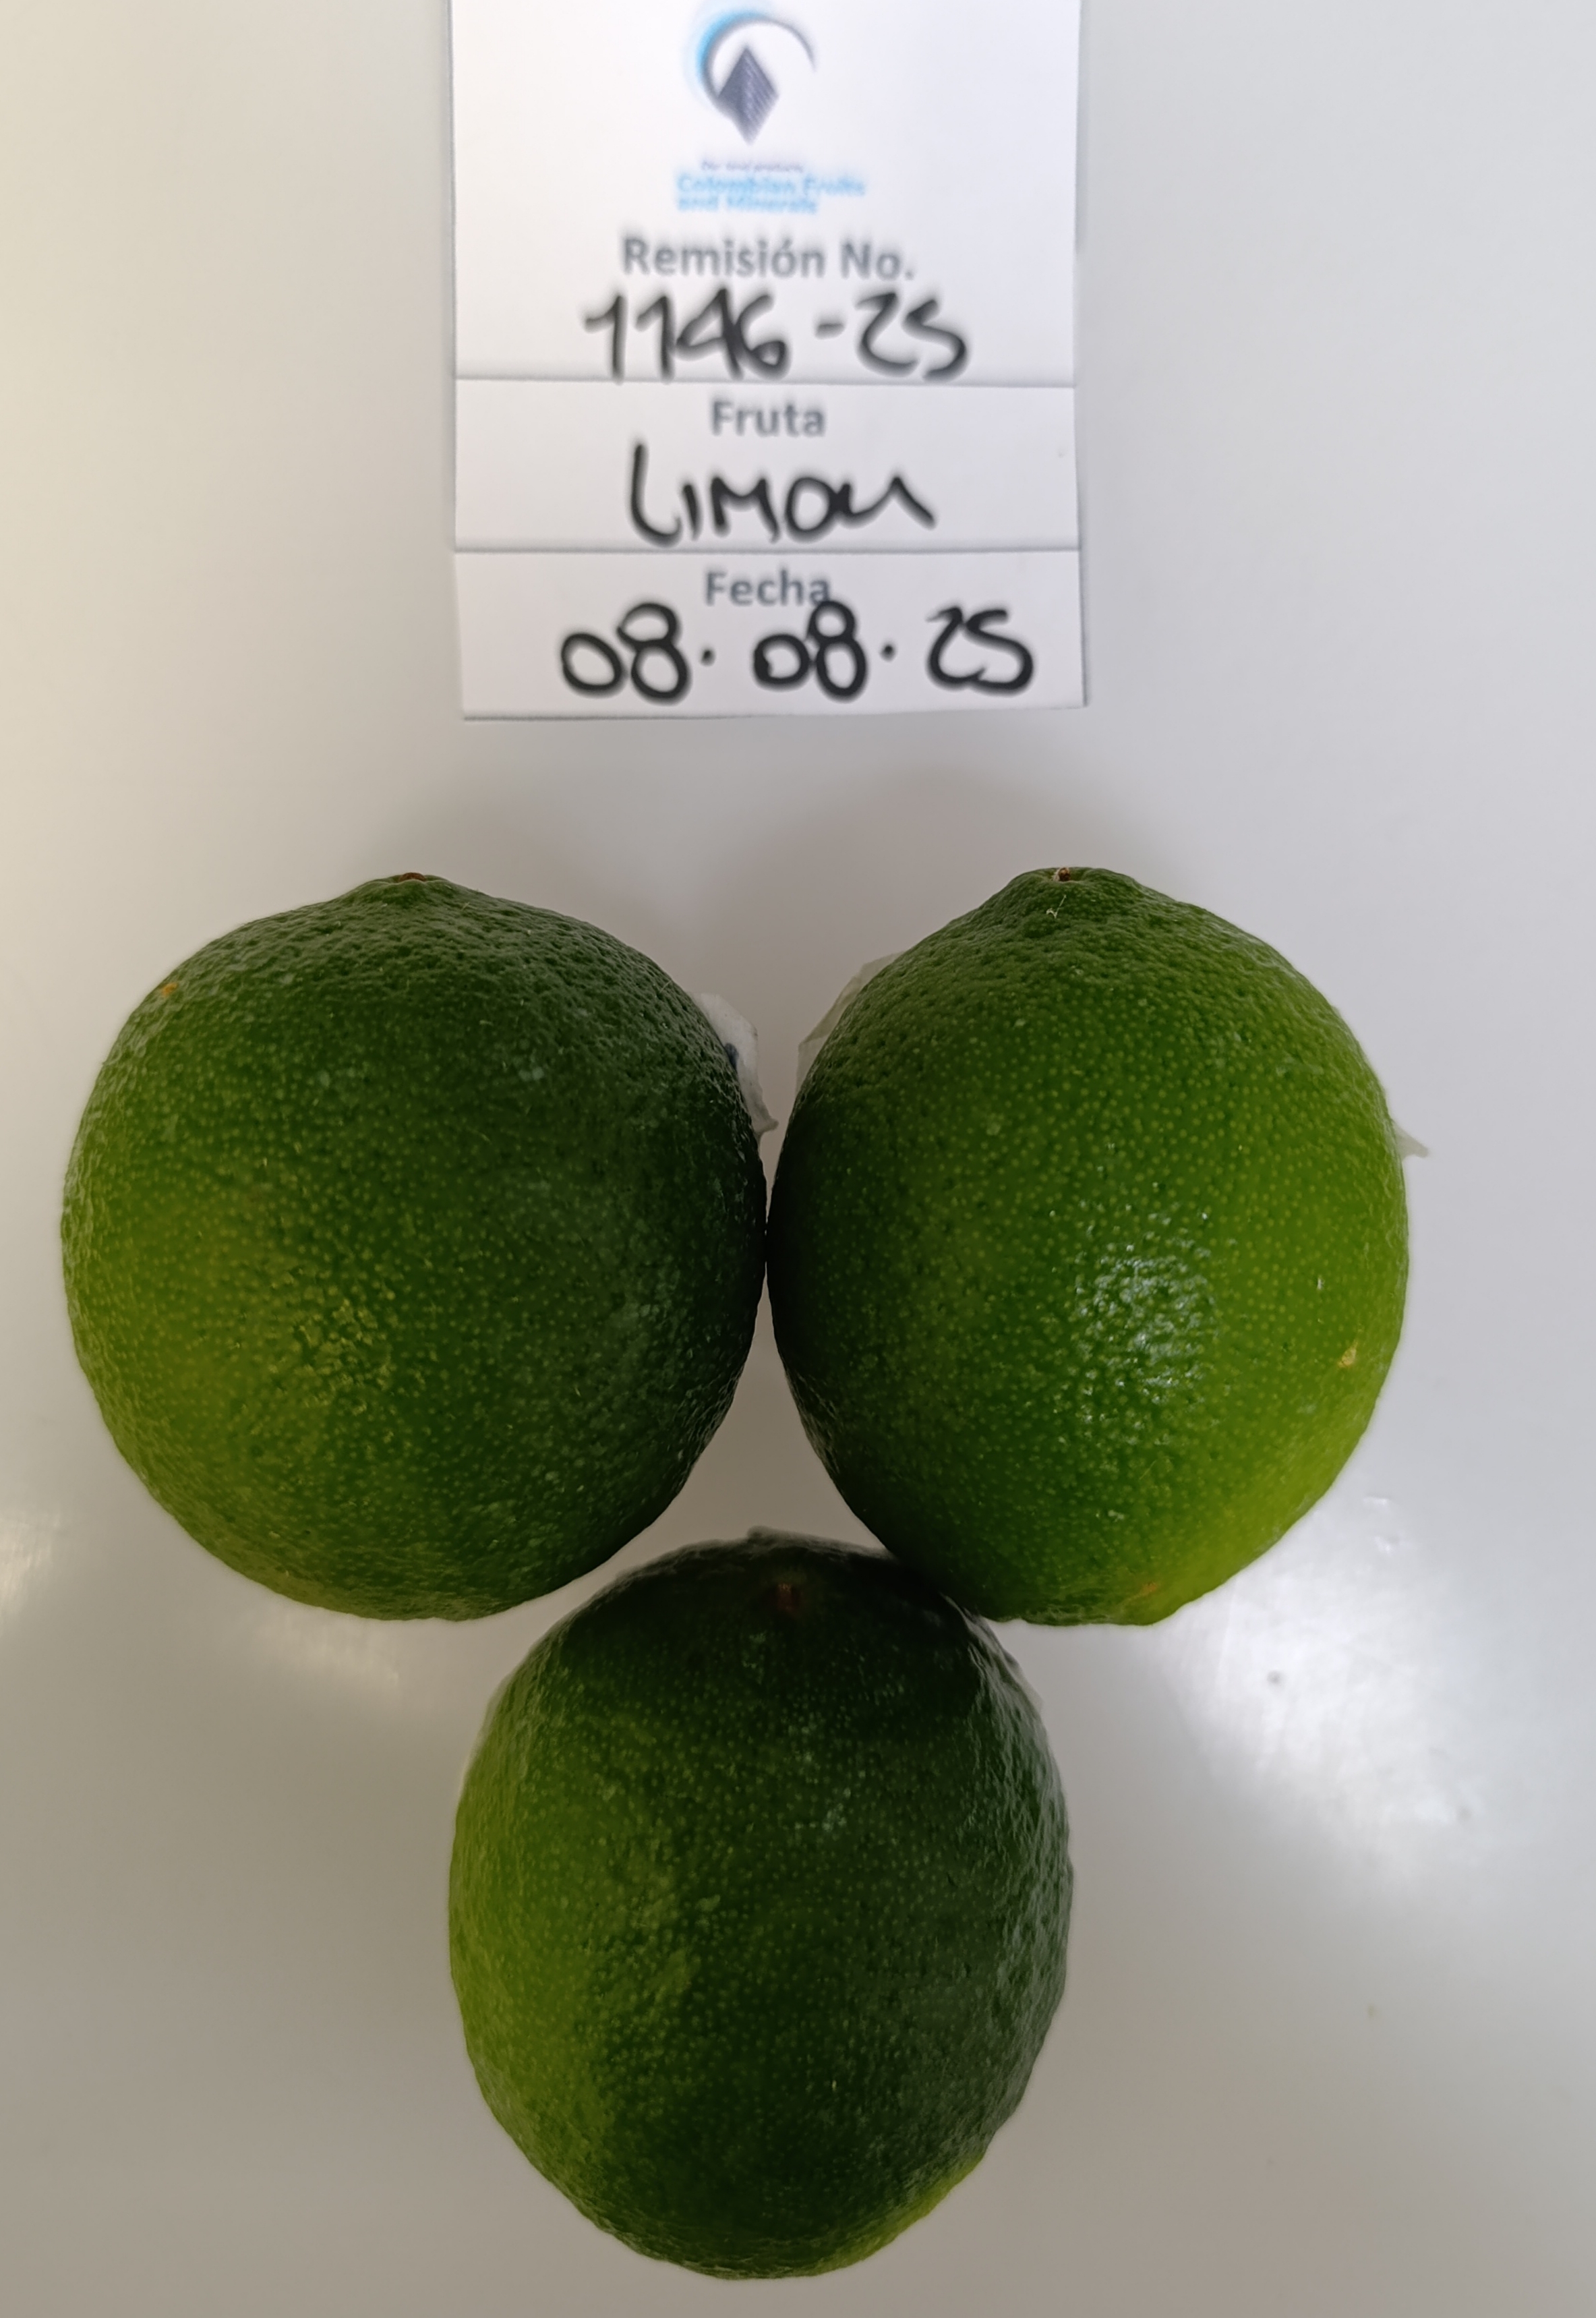 Colombian Fruits
and Minerals
Remisión No.
1146-25
Fruta
LIMON
Fecha
08.08.25